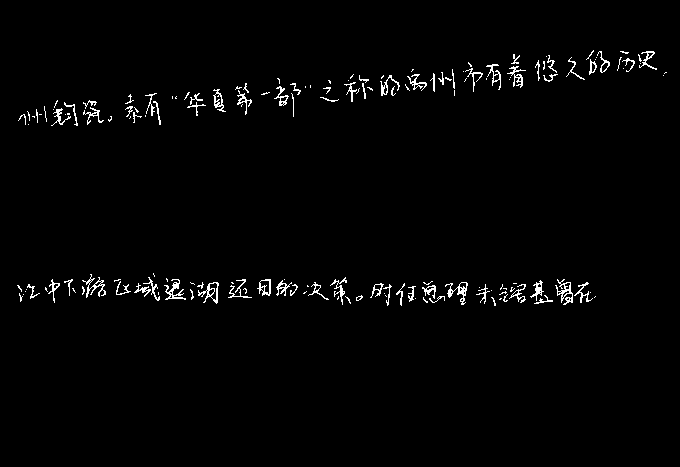 州钧瓷。素有“华夏第一都”之称的禹州市有着悠久的历史，
江中下游区域退湖还田的决策。时任总理朱镕基曾在